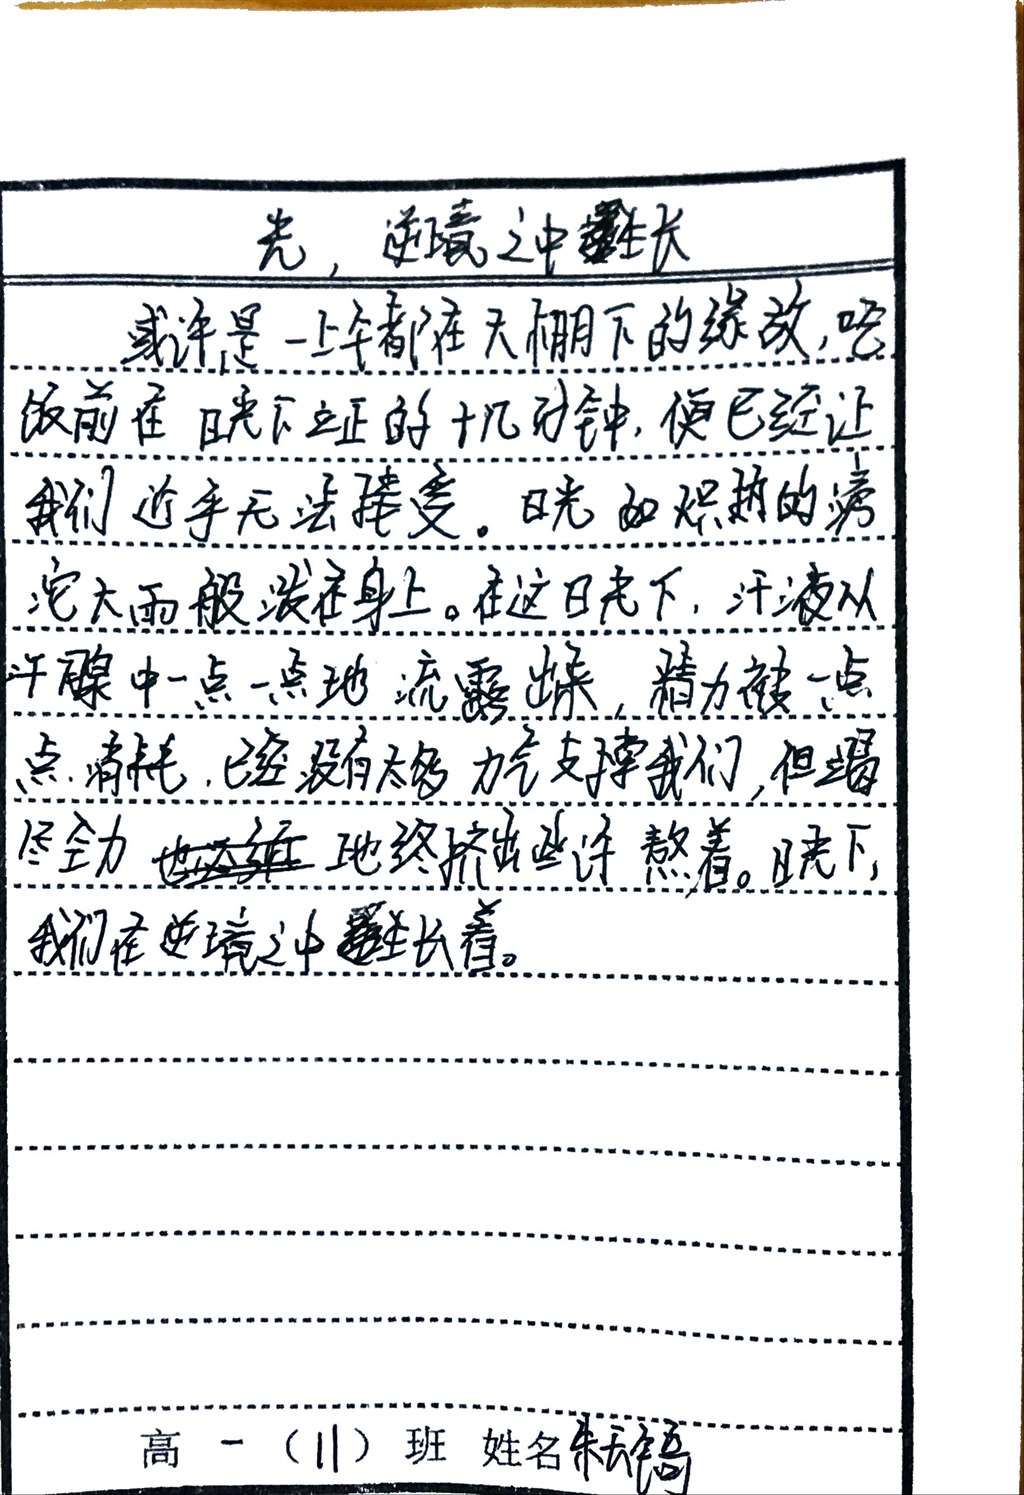 光，逆境之中生长
或许是一上午都在天棚下的缘故，吃
饭前在日光下立正的十几分钟，便已经让
我们近乎无法接受。日光如炽热的滂
沱大雨般泼在身上。在这日光下，汗液从
汗腺中一点一点地流露出来，精力被一点
点消耗，已经没有太多力气支撑我们，但竭
尽全力地终挤出些许熬着。日光下，
我们在逆境之中生长着。
高一（11）班 姓名朱天